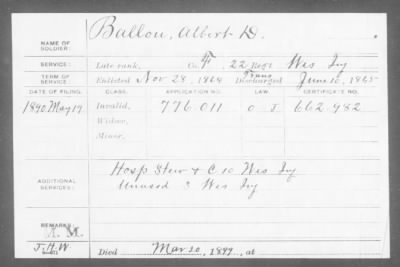 NAME OF SOLDIER: Ballou, Albert D.
SERVICE: Late rank, Co. F, 22 Regt Wis Inf
TERM OF SERVICE: Enlisted Nov 28, 1864 Trans Discharged June 10, 1865
DATE OF FILING. CLASS. APPLICATION NO. LAW. CERTIFICATE NO.
1890 May 19 Invalid, 776.011 0 J 662.982
Widow,
Minor,
ADDITIONAL SERVICES: Hosp Stew + C 10 Wis Inf
3 Wis Inf
REMARKS:
J.H.W.
Died Mar 20, 1899, at